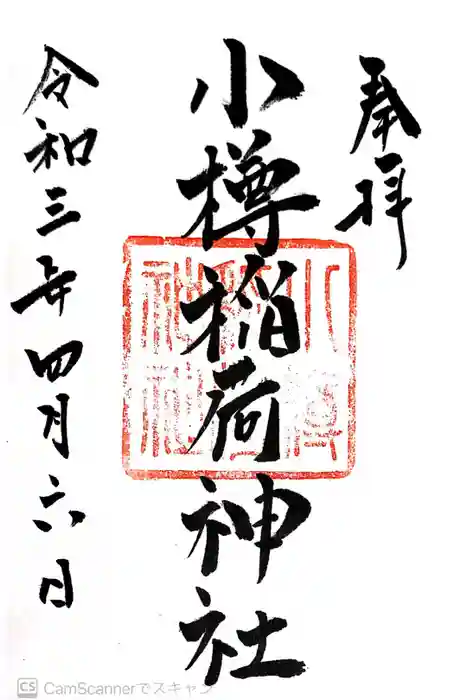 奉拝
小樽稲荷神社
令和三年四月六日
CS CamScannerでスキャン